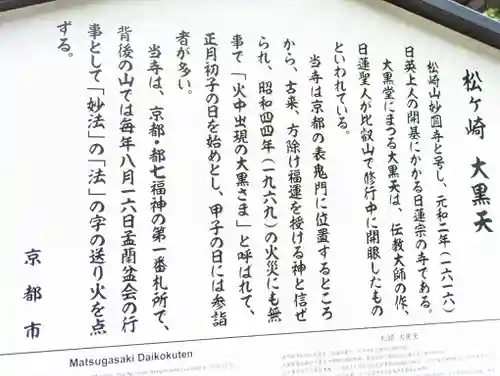 松ヶ崎 大黒天
松崎山妙圓寺と号し、元和二年(一六一六)
日英上人の開基にかかる日蓮宗の寺である。
大黒堂にまつる大黒天は、伝教大師の作、
日蓮聖人が比叡山で修行中に開眼したもの
といわれている。
当寺は京都の表鬼門に位置するところ
から、古来、方除け福運を授ける神と信ぜ
られ、昭和四四年(一九六九)の火災にも無
事で「火中出現の大黒さま」と呼ばれて、
正月初子の日を始めとし、甲子の日には参詣
者が多い。
当寺は、京都・都七福神の第一番札所で、
背後の山では毎年八月一六日盂蘭盆会の行
事として「妙法」の「法」の字の送り火を点
ずる。
京都市
Matsugasaki Daikokuten
松ヶ崎 大黒天